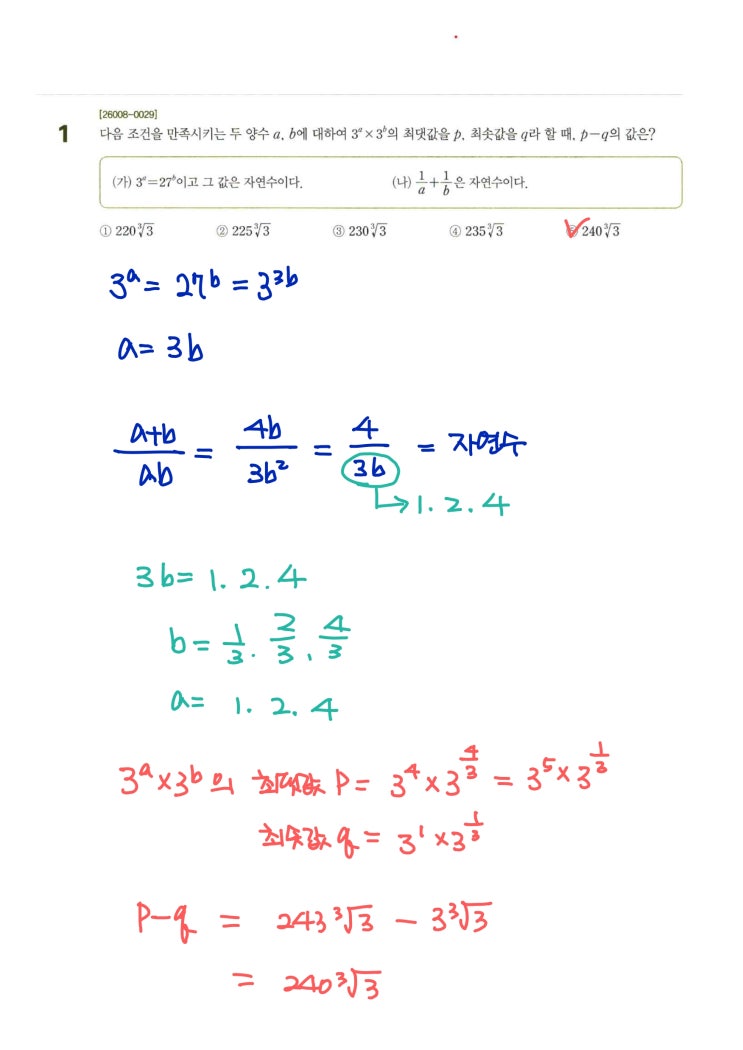 [26008-0029]
1 다음 조건을 만족시키는 두 양수 a, b에 대하여 3ᵃ×3ᵇ의 최댓값을 p, 최솟값을 q라 할 때, p-q의 값은?
(가) 3ᵃ=27ᵇ이고 그 값은 자연수이다. (나) 1/a+1/b은 자연수이다.
① 220∛3 ② 225∛3 ③ 230∛3 ④ 235∛3 ⑤ 240∛3
3ᵃ = 27ᵇ = 3³ᵇ
a = 3b
(a+b)/(ab) = 4b/(3b²) = 4/(3b) = 자연수
→ 1. 2. 4
3b = 1. 2. 4
b = 1/3. 2/3. 4/3
a = 1. 2. 4
3ᵃ×3ᵇ의 최댓값 P = 3⁴ × 3^(4/3) = 3⁵ × 3^(1/3)
최솟값 q = 3¹ × 3^(1/3)
P-q = 243∛3 - 3∛3
= 240∛3